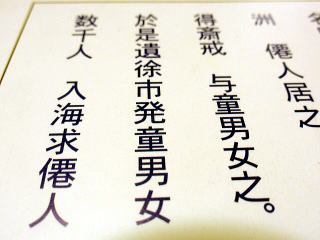 洲　僊人居之
得斎戒　与童男女之。
於是遺徐市発童男女
数千人　入海求僊人